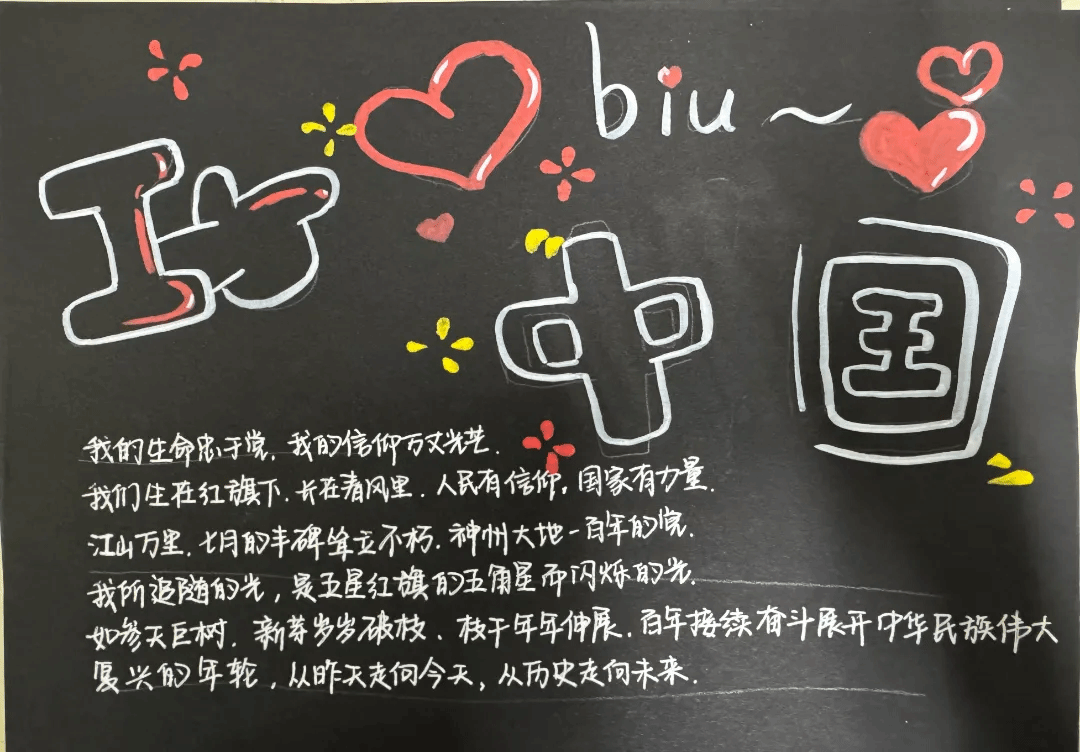 biu~
中国
我的生命忠于党，我的信仰万丈光芒.
我们生在红旗下.长在春风里.人民有信仰。国家有力量.
江山万里.七月的丰碑耸立不朽.神州大地一百年的
我所追随的光，是五星红旗的五角星而闪烁的光.
如参天巨树.新芽岁岁破枝、枝干年年伸展.百年接续奋斗展开中华民族伟大
复兴的年轮，从昨天走向今天，从历史走向未来.